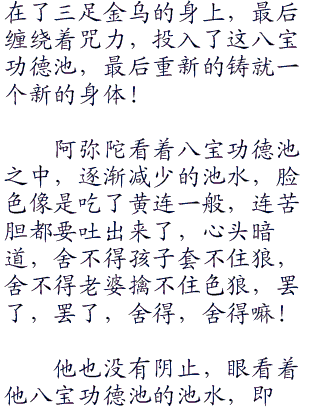 在了三足金乌的身上，最后
缠绕着咒力，投入了这八宝
功德池，最后重新的铸就一
个新的身体！
阿弥陀看着八宝功德池
之中，逐渐减少的池水，脸
色像是吃了黄连一般，连苦
胆都要吐出来了，心头暗
道，舍不得孩子套不住狼，
舍不得老婆擒不住色狼，罢
了，罢了，舍得，舍得嘛！
他也没有阴止，眼看着
他八宝功德池的池水，即